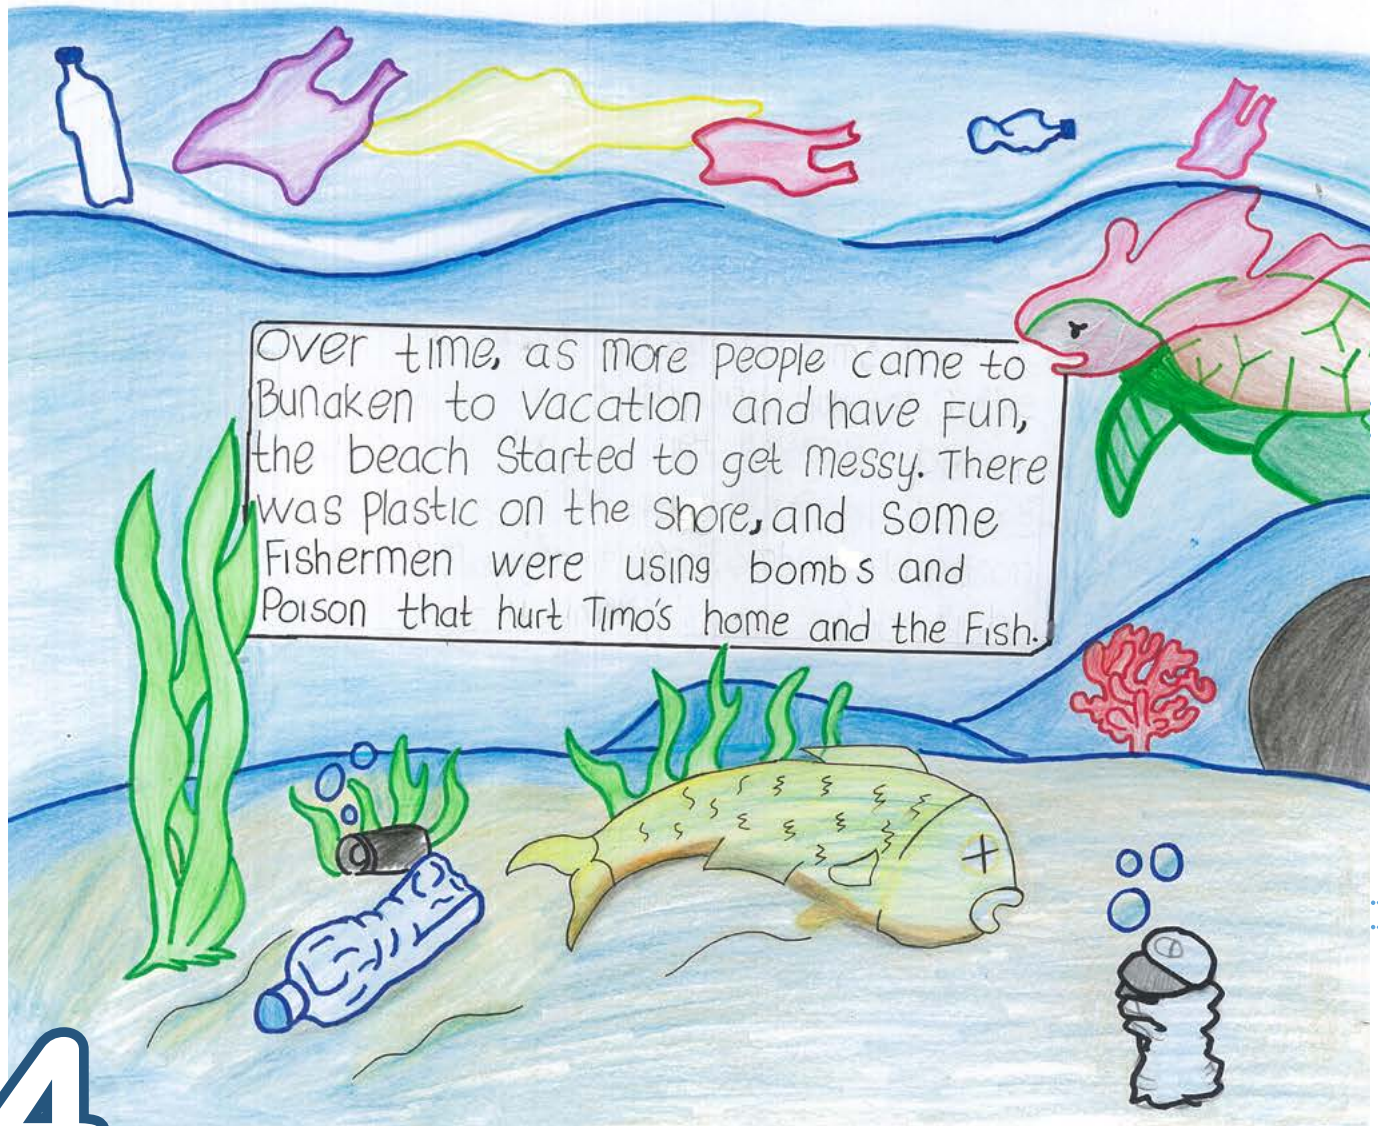 Over time, as more people came to
Bunaken to vacation and have Fun,
the beach Started to get messy. There
was Plastic on the Shore, and Some
Fishermen were using bombs and
Poison that hurt Timo's home and the Fish.
4